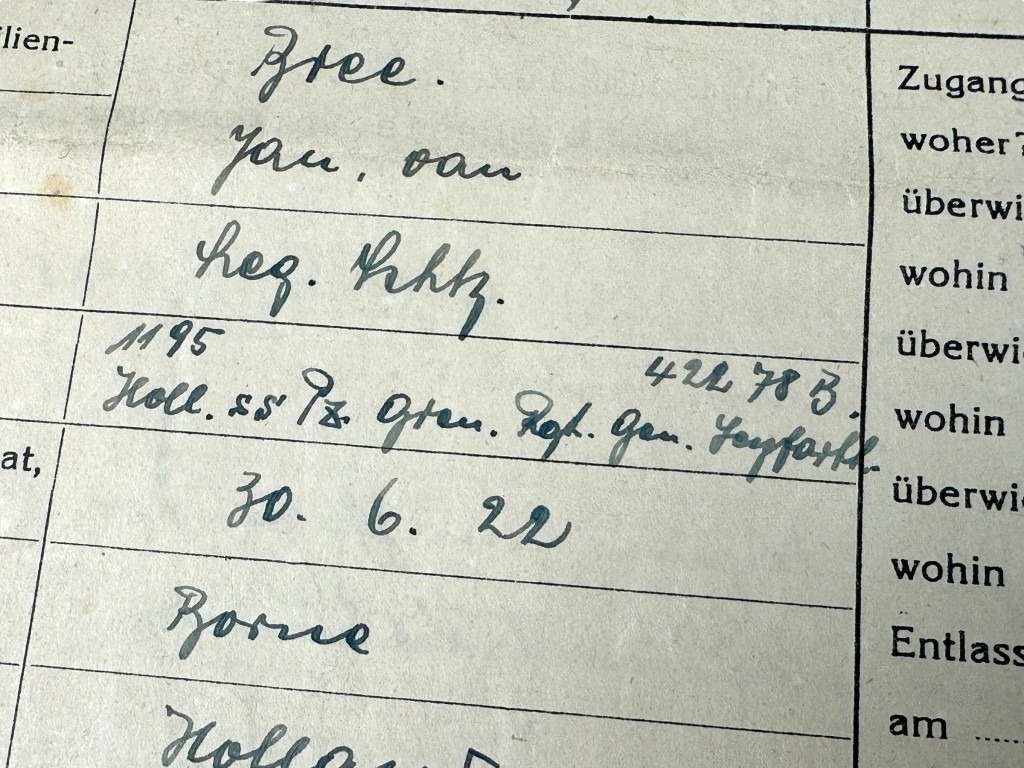 ilien-
Bree.
Jan, van
Leg. Schtz.
1195
422 78 B.
Holl. SS Pz. Gren. Rgt. Gen. Seyffardt.
at,
30. 6. 22
Borne
Holland
Zugang
woher?
überwi
wohin
überwie
wohin
überwie
wohin
Entlass
am ......